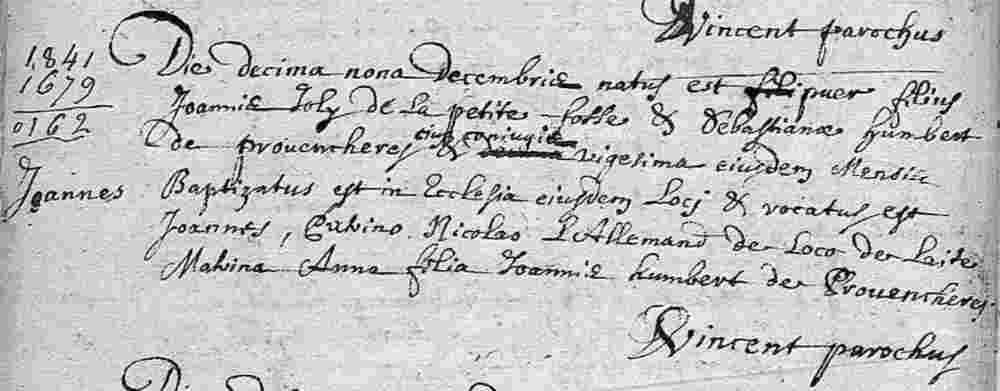 Vincent parochus
1841
1679
0162
Joannes
Die decima nona decembris natus est puer filius
Joannis Joly de la petite fosse & Sebastianæ humbert
de provencheres eius coniugis & vigesima eiusdem Mensis
Baptizatus est in Ecclesia eiusdem Locj & vocatus est
Joannes, Patrino Nicolao L'Allemand de Loco de
Matrina Anna filia Joannis humbert de Provencheres.
Vincent parochus
Die